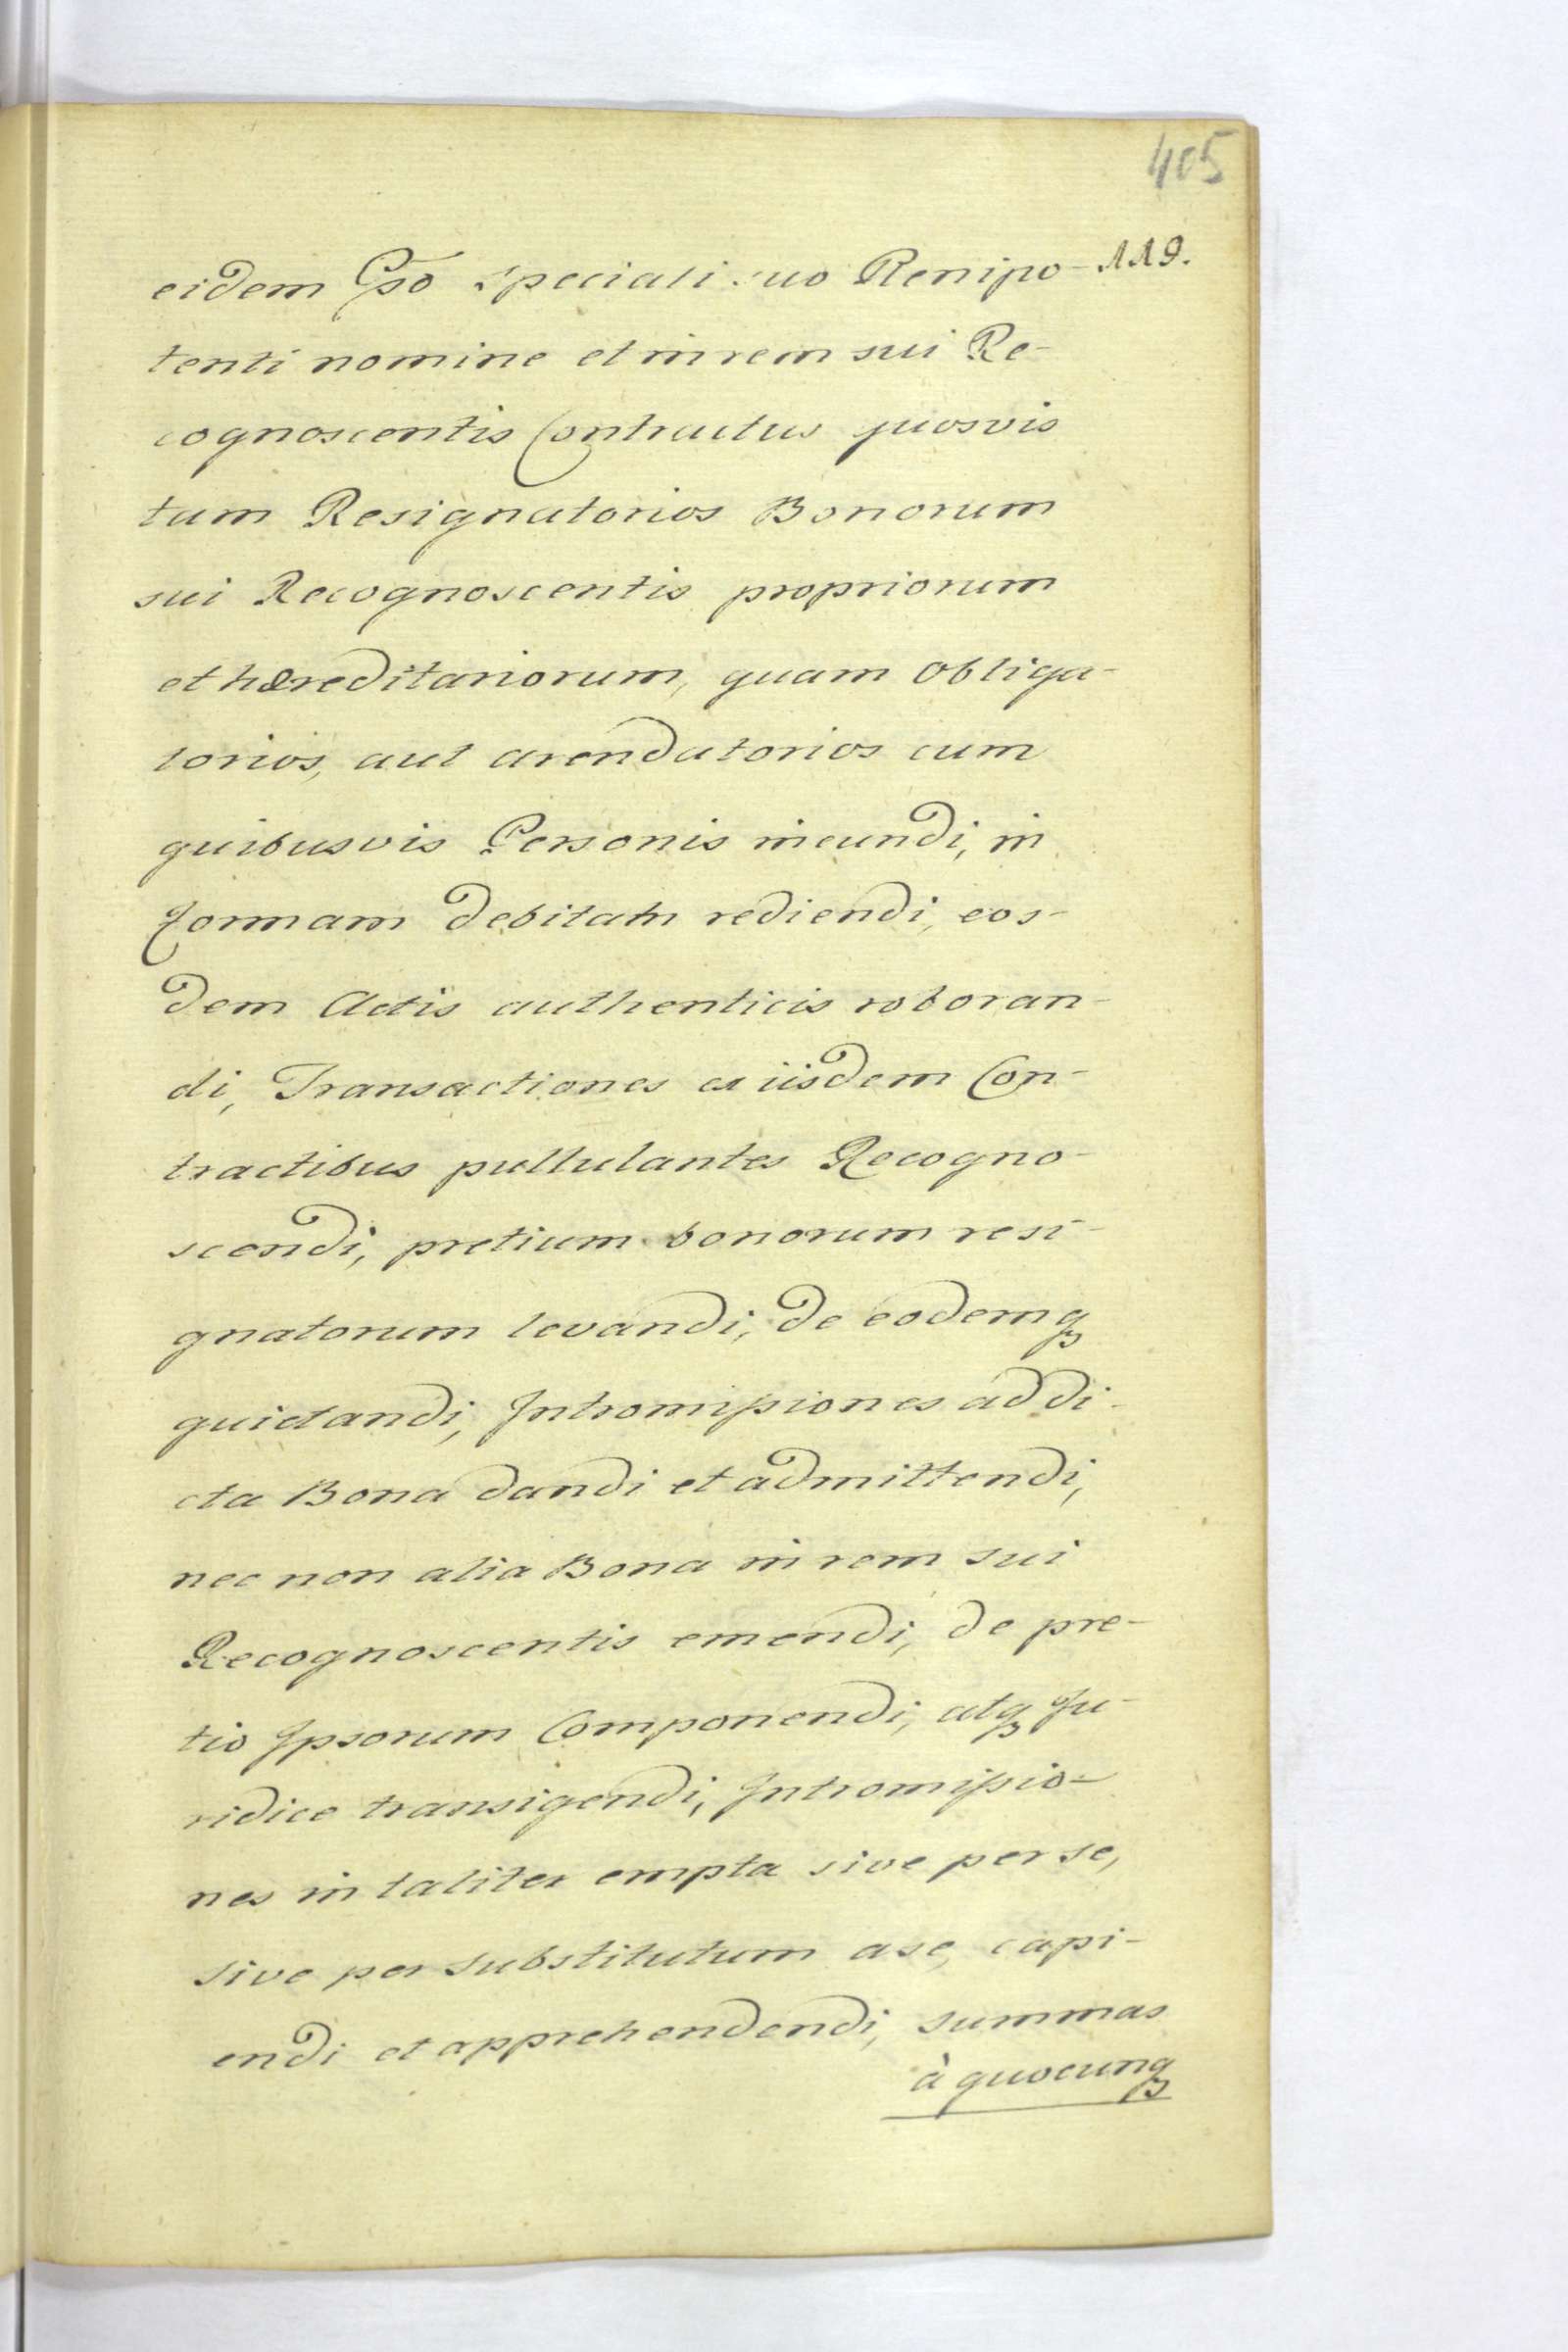 405
119.
eidem Gso Speciali suo Plenipo-
tenti nomine et in rem sui Re-
cognoscentis Contractus quosvis
tam Resignatorios Bonorum
sui Recognoscentis propriorum
et hæreditariorum, quam obliga-
torios, aut arendatorios cum
quibusvis Personis ineundi, in
formam debitam rediendi, eos-
dem Actis authenticis roboran-
di, Transactiones ex iisdem Con-
tractibus pullulantes Recogno-
scendi, pretium bonorum resi-
gnatorum levandi, de eodemq
quietandi, Intromissiones ad di-
cta Bona dandi et admittendi,
nec non alia Bona in rem sui
Recognoscentis emendi, de pre-
tio Ipsorum Componendi, atq Ju-
ridice transigendi, Intromissio-
nes in taliter empta sive per se,
sive per substitutum a se, capi-
endi et apprehendendi, summas
à quocunq